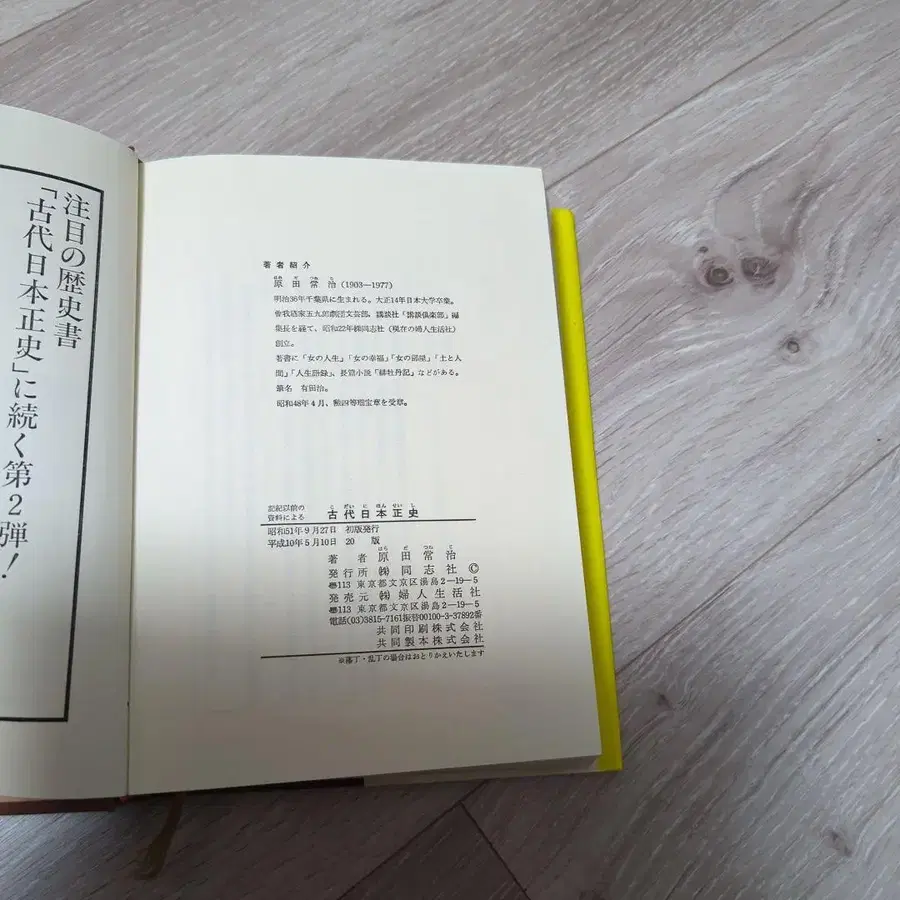 注目の歴史書
「古代日本正史」に続く第2弾!
著者紹介
はら だ つね じ
原田常治(1903—1977)
明治36年千葉県に生まれる。大正14年日本大学卒業。
曾我廼家五九郎劇団文芸部、講談社「講談倶楽部」編
集長を経て、昭和22年㈱同志社(現在の婦人生活社)
創立。
著書に「女の人生」「女の幸福」「女の部屋」「土と人
間」「人生語録」、長篇小説「緋牡丹記」などがある。
筆名 有田治。
昭和48年4月、勲四等瑞宝章を受章。
記紀以前の
資料による
こ だい に ほん せい し
古代日本正史
昭和51年9月27日 初版発行
平成10年5月10日 20 版
はら だ つね じ
著者 原田常治
発行所 ㈱同志社 ©
〠113 東京都文京区湯島2-19-5
発売元 ㈱婦人生活社
〠113 東京都文京区湯島2-19-5
電話(03)3815-7161振替00100-3-37892番
共同印刷株式会社
共同製本株式会社
※落丁・乱丁の場合はおとりかえいたします